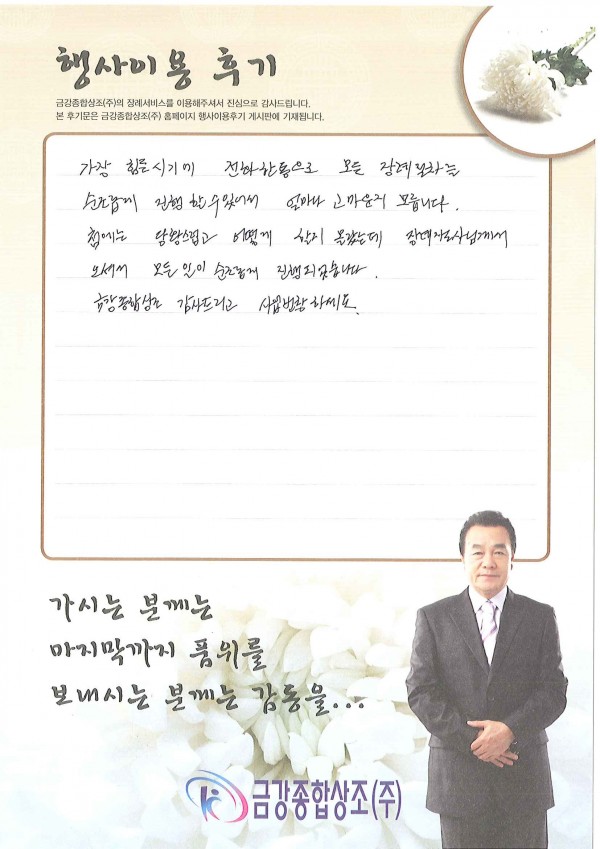 행사이용 후기
금강종합상조(주)의 장례서비스를 이용해주셔서 진심으로 감사드립니다.
본 후기문은 금강종합상조(주) 홈페이지 행사이용후기 게시판에 기재됩니다.
가장 힘든시기에 전화한통으로 모든 장례절차는
순조롭게 진행할수있어서 얼마나 고마운지 모릅니다.
첨에는 당황스럽고 어떻게 할지 몰랐는데 장례지도사님께서
오셔서 모든일이 순조롭게 진행되었습니다.
금강종합상조 감사드리고 사업번창하세요.
가시는 분께는
마지막까지 품위를
보내시는 분께는 감동을...
금강종합상조(주)